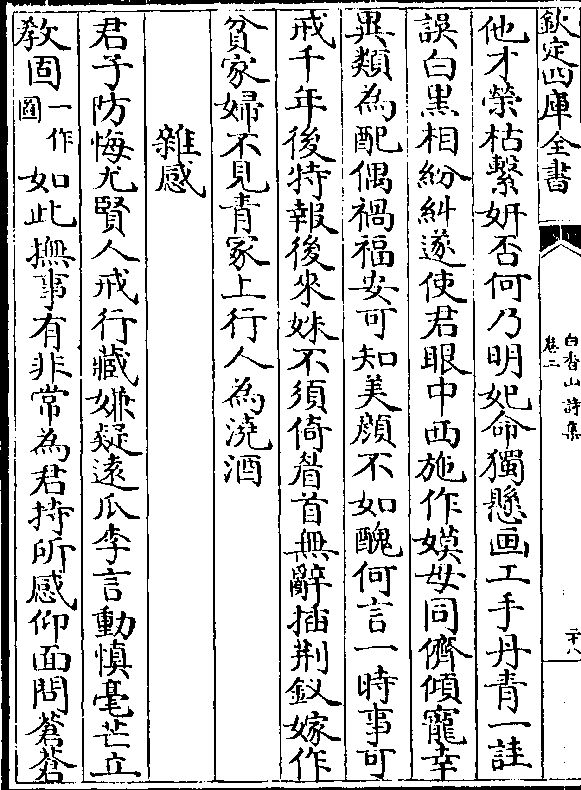 欽定四庫全書
白香山詩集
卷二
二十八
他才榮枯繫妍否何乃明妃命獨懸画工手丹青一詿
誤白黒相紛糾遂使君眼中西施作嫫母同儕傾寵幸
異類為配偶禍福安可知美顔不如醜何言一時事可
戒千年後特報後來姝不須倚眉首無辭插荆釵嫁作
貧家婦不見青冢上行人為澆酒
雜感
君子防悔尤賢人戒行藏嫌疑遠瓜李言動慎毫芒立
敎固一作圖如此撫事有非常為君持所感仰面問蒼蒼